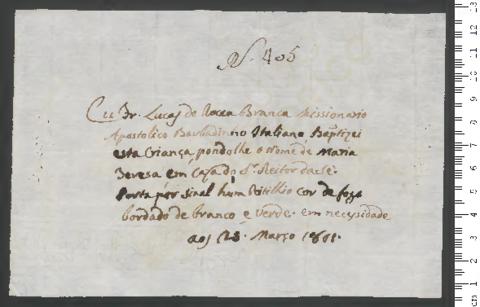 N. 405
Eu Fr. Lucas de Rocca Branca Missionario
Apostolico Barbadinno Italiano Baptizei
esta Criança, pondolhe o nome de Maria
Teresa em Casa do Sr. Reitor da Sé.
Porta por sinal hum Vistilhio Cor de fogo
bordado de branco e verde. em necessidade
aos 28. Março